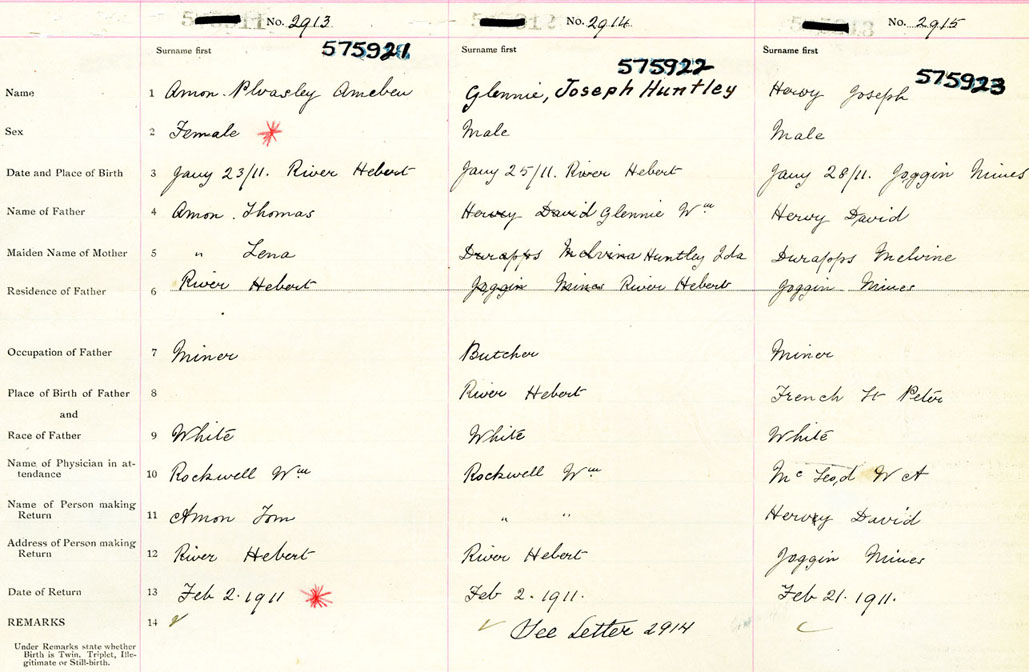 No. 2913 No. 2914 No. 2915
Surname first 575921 Surname first 575922 Surname first 575923
Name 1 Amon Glennie, Joseph Huntley Hervy Joseph
Sex 2 Female Male Male
Date and Place of Birth 3 Jany 23/11. River Hebert Jany 25/11. River Hebert Jany 28/11. Joggin Mines
Name of Father 4 Amon. Thomas Hervey David Glennie Wm Hervy David
Maiden Name of Mother 5 " Lena Durapps Melvina Huntley Ida Durapps Melvine
Residence of Father 6 River Hebert Joggin Mines River Hebert Joggin Mines
Occupation of Father 7 Miner Butcher Miner
Place of Birth of Father 8 River Hebert French St Peter
and
Race of Father 9 White White White
Name of Physician in at-
tendance 10 Rockwell Wm Rockwell Wm Mc Leod W A
Name of Person making
Return 11 Amon Tom " " Hervy David
Address of Person making
Return 12 River Hebert River Hebert Joggin Mines
Date of Return 13 Feb 2. 1911 Feb 2. 1911. Feb 21. 1911.
REMARKS 14 See Letter 2914
Under Remarks state whether
Birth is Twin, Triplet, Ille-
gitimate or Still-birth.